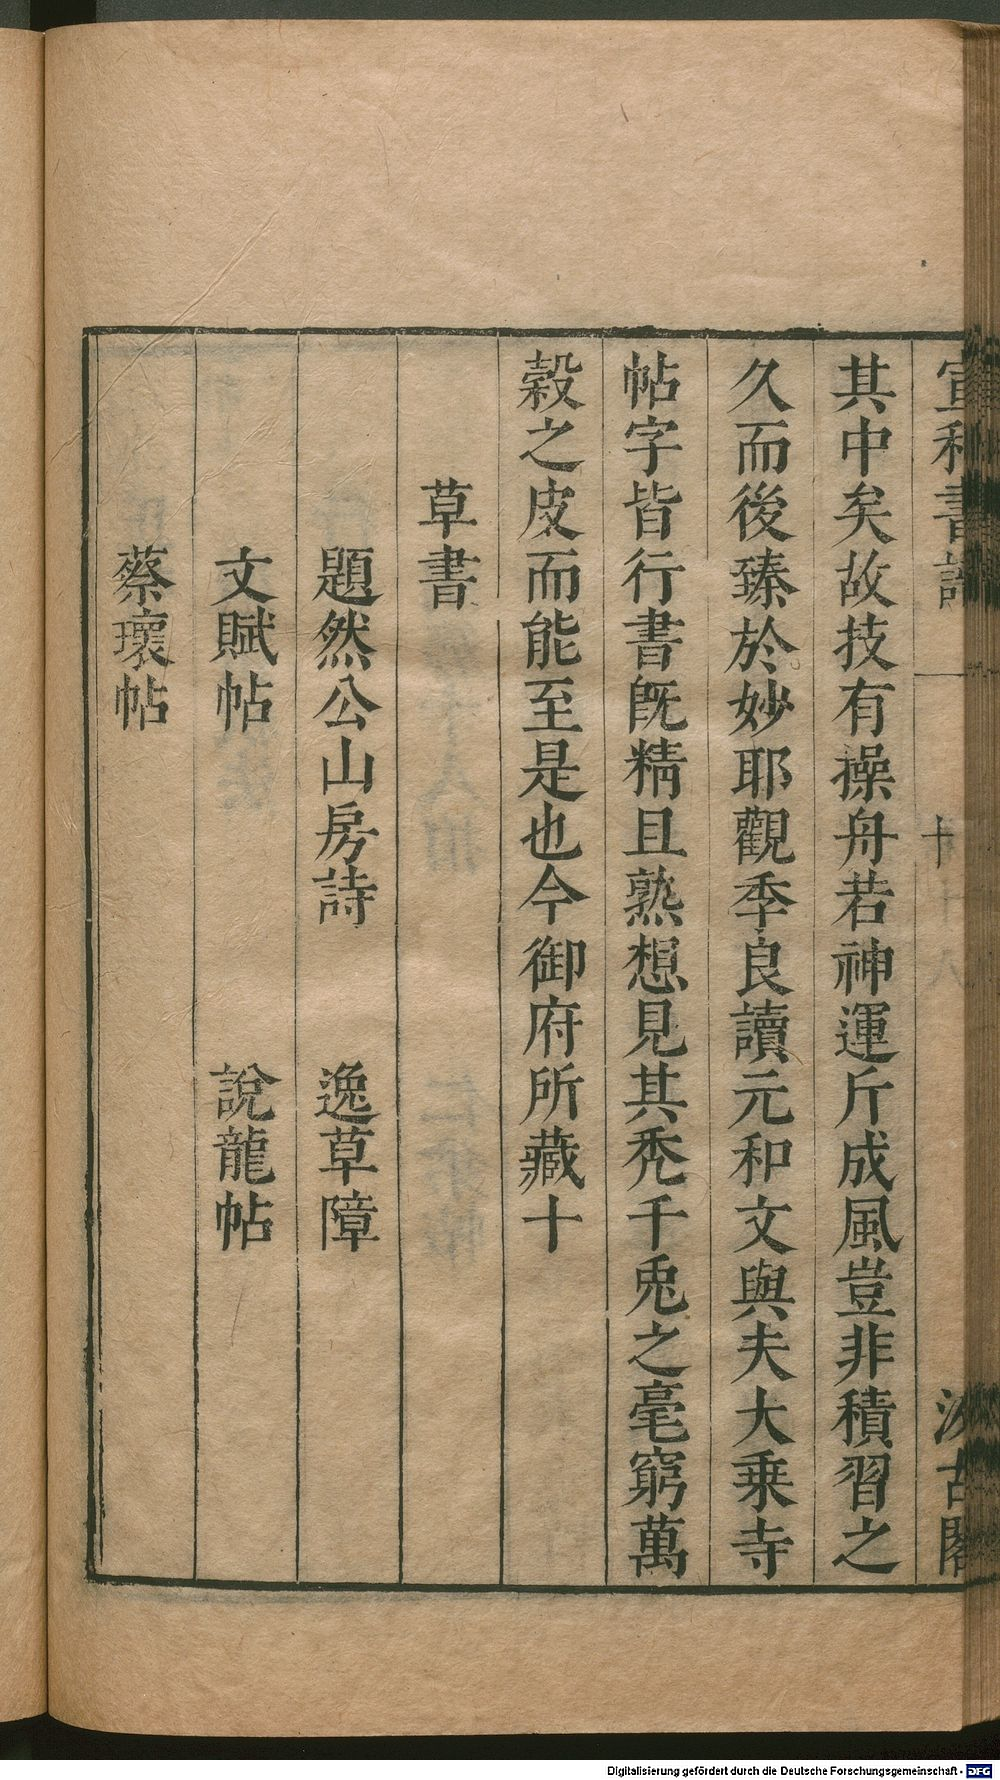 宣和書譜 十 汲古閣
其中矣故技有操舟若神運斤成風豈非積習之
久而後臻於妙耶觀季良讀元和文與夫大乗寺
帖字皆行書旣精且熟想見其禿千兎之毫窮萬
榖之皮而能至是也今御府所藏十
草書
題然公山房詩 逸草障
文賦帖 說龍帖
蔡瓌帖
Digitalisierung gefördert durch die Deutsche Forschungsgemeinschaft - DFG